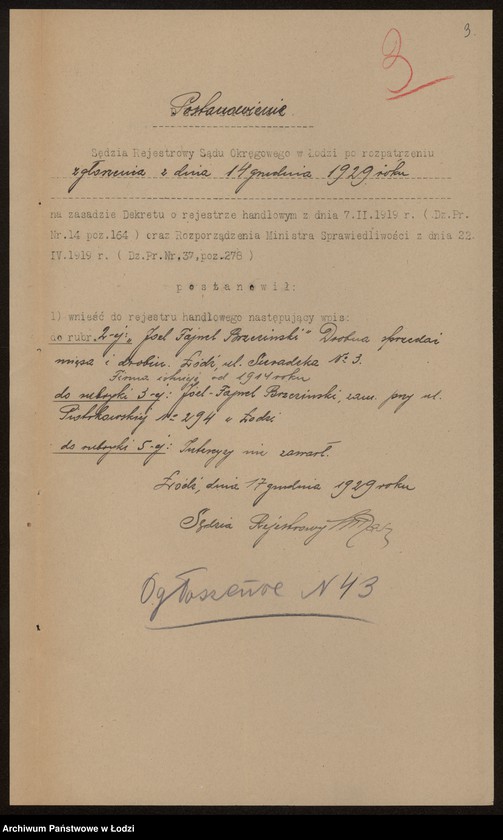 3.
3
Postanowienie
Sędzia Rejestrowy Sądu Okręgowego w Łodzi po rozpatrzeniu
zgłoszenia z dnia 14 grudnia 1929 roku
na zasadzie Dekretu o rejestrze handlowym z dnia 7.II.1919 r. ( Dz.Pr.
Nr.14 poz.164 ) oraz Rozporządzenia Ministra Sprawiedliwości z dnia 22.
IV.1919 r. ( Dz.Pr.Nr,37,poz.278 )
p o s t a n o w i ł:
1) wnieść do rejestru handlowego następujący wpis:
do rubr. 2-ej: „Josel Fajwel Brzeziński" Drobna sprzedaż
mięsa i drobiu. Łódź, ul. Sieradzka № 3.
Firma istnieje od 1914 roku
do rubryki 3-ej: Josel-Fajwel Brzeziński, zam. przy ul.
№ 294 w Łodzi
do rubryki 5-ej: Intercyzy nie zawarł.
Łódź, dnia 17 grudnia 1929 roku
Sędzia Rejestrowy
Ogłoszenie N 43
Archiwum Państwowe w Łodzi